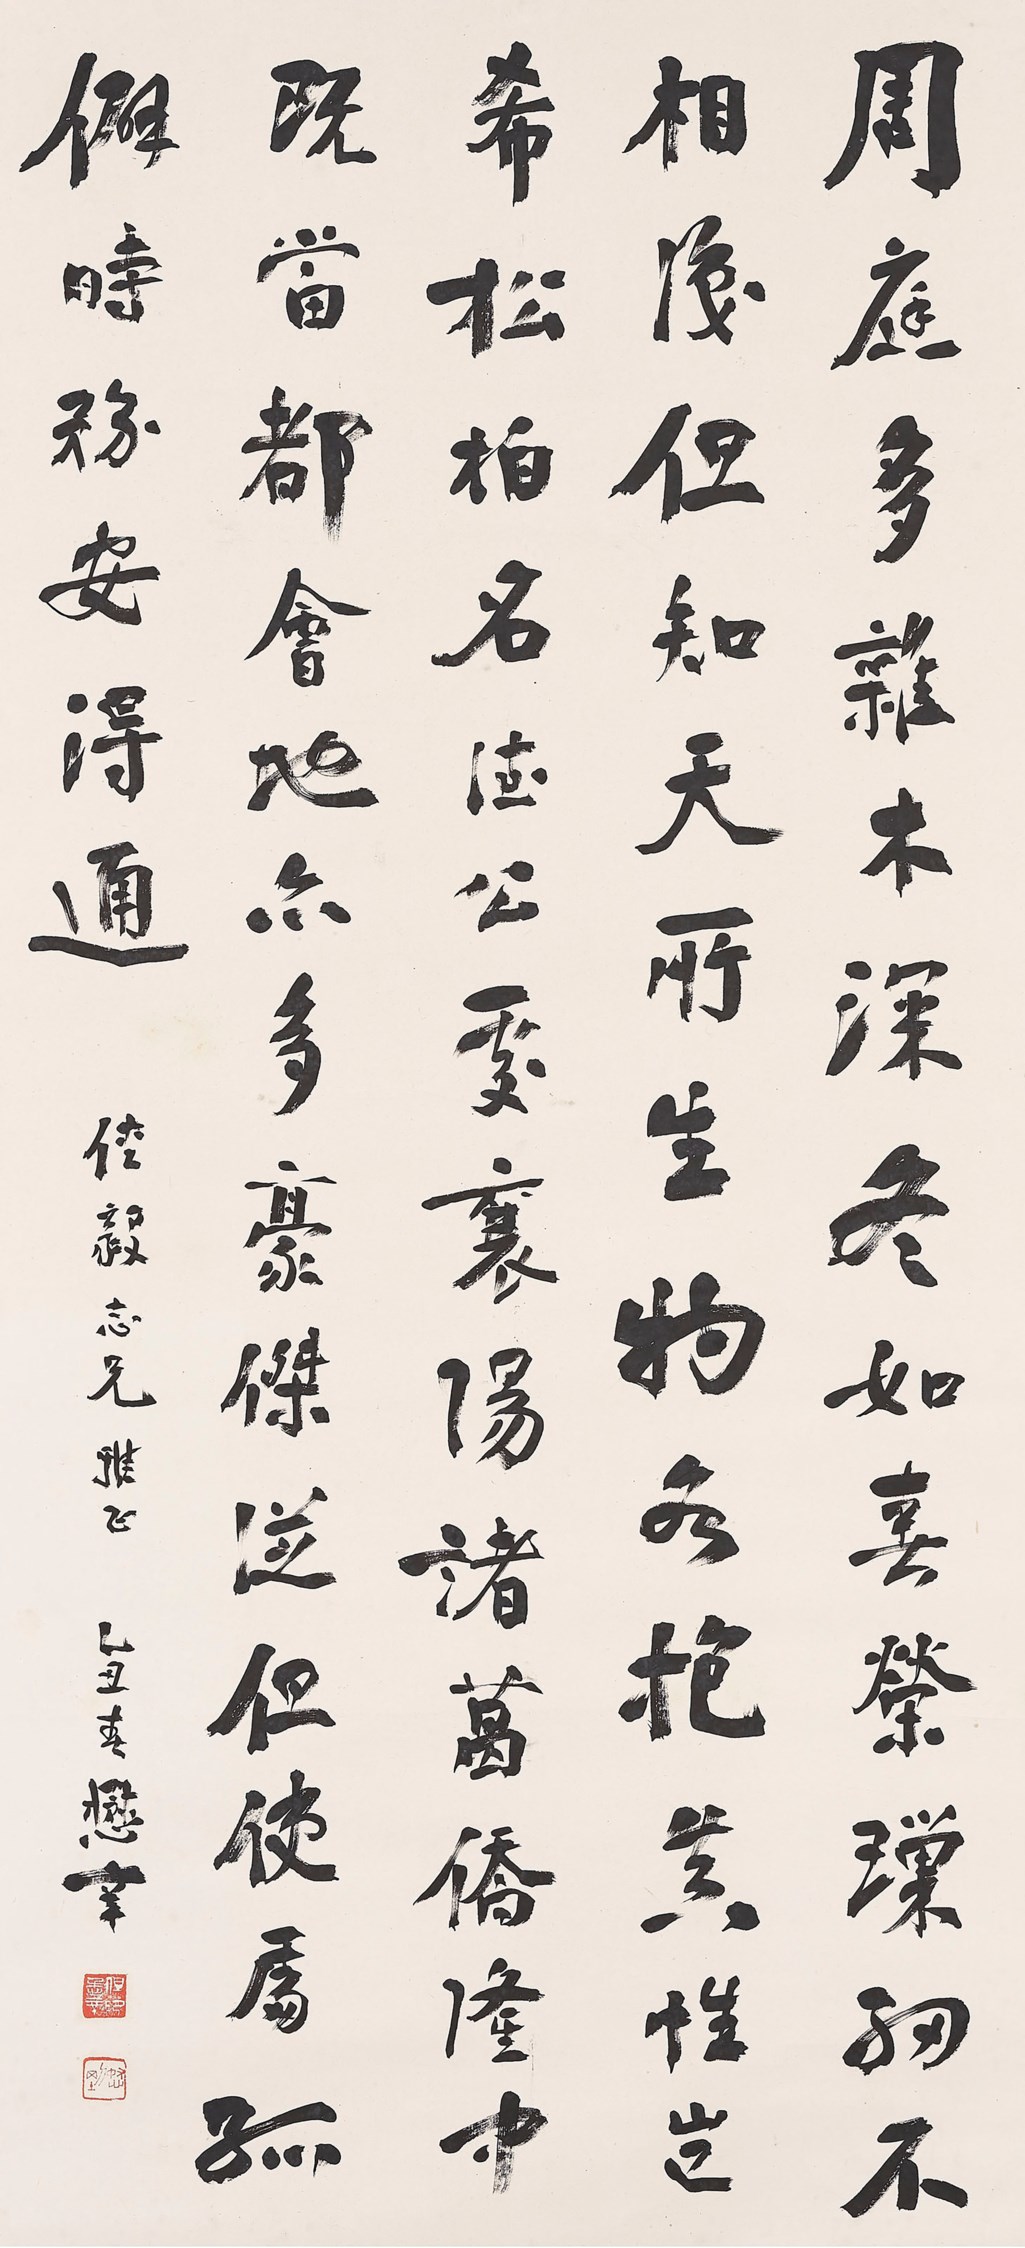 周庭多雜木深冬如喜榮璅細不
相淩但知天所生物各抱真性豈
希松柏名德公處襄陽諸葛僑隆中
既當都會地亦多豪傑從但使處孤
僻時務安得通
俓毅志兄雅正 乙丑春懋辛